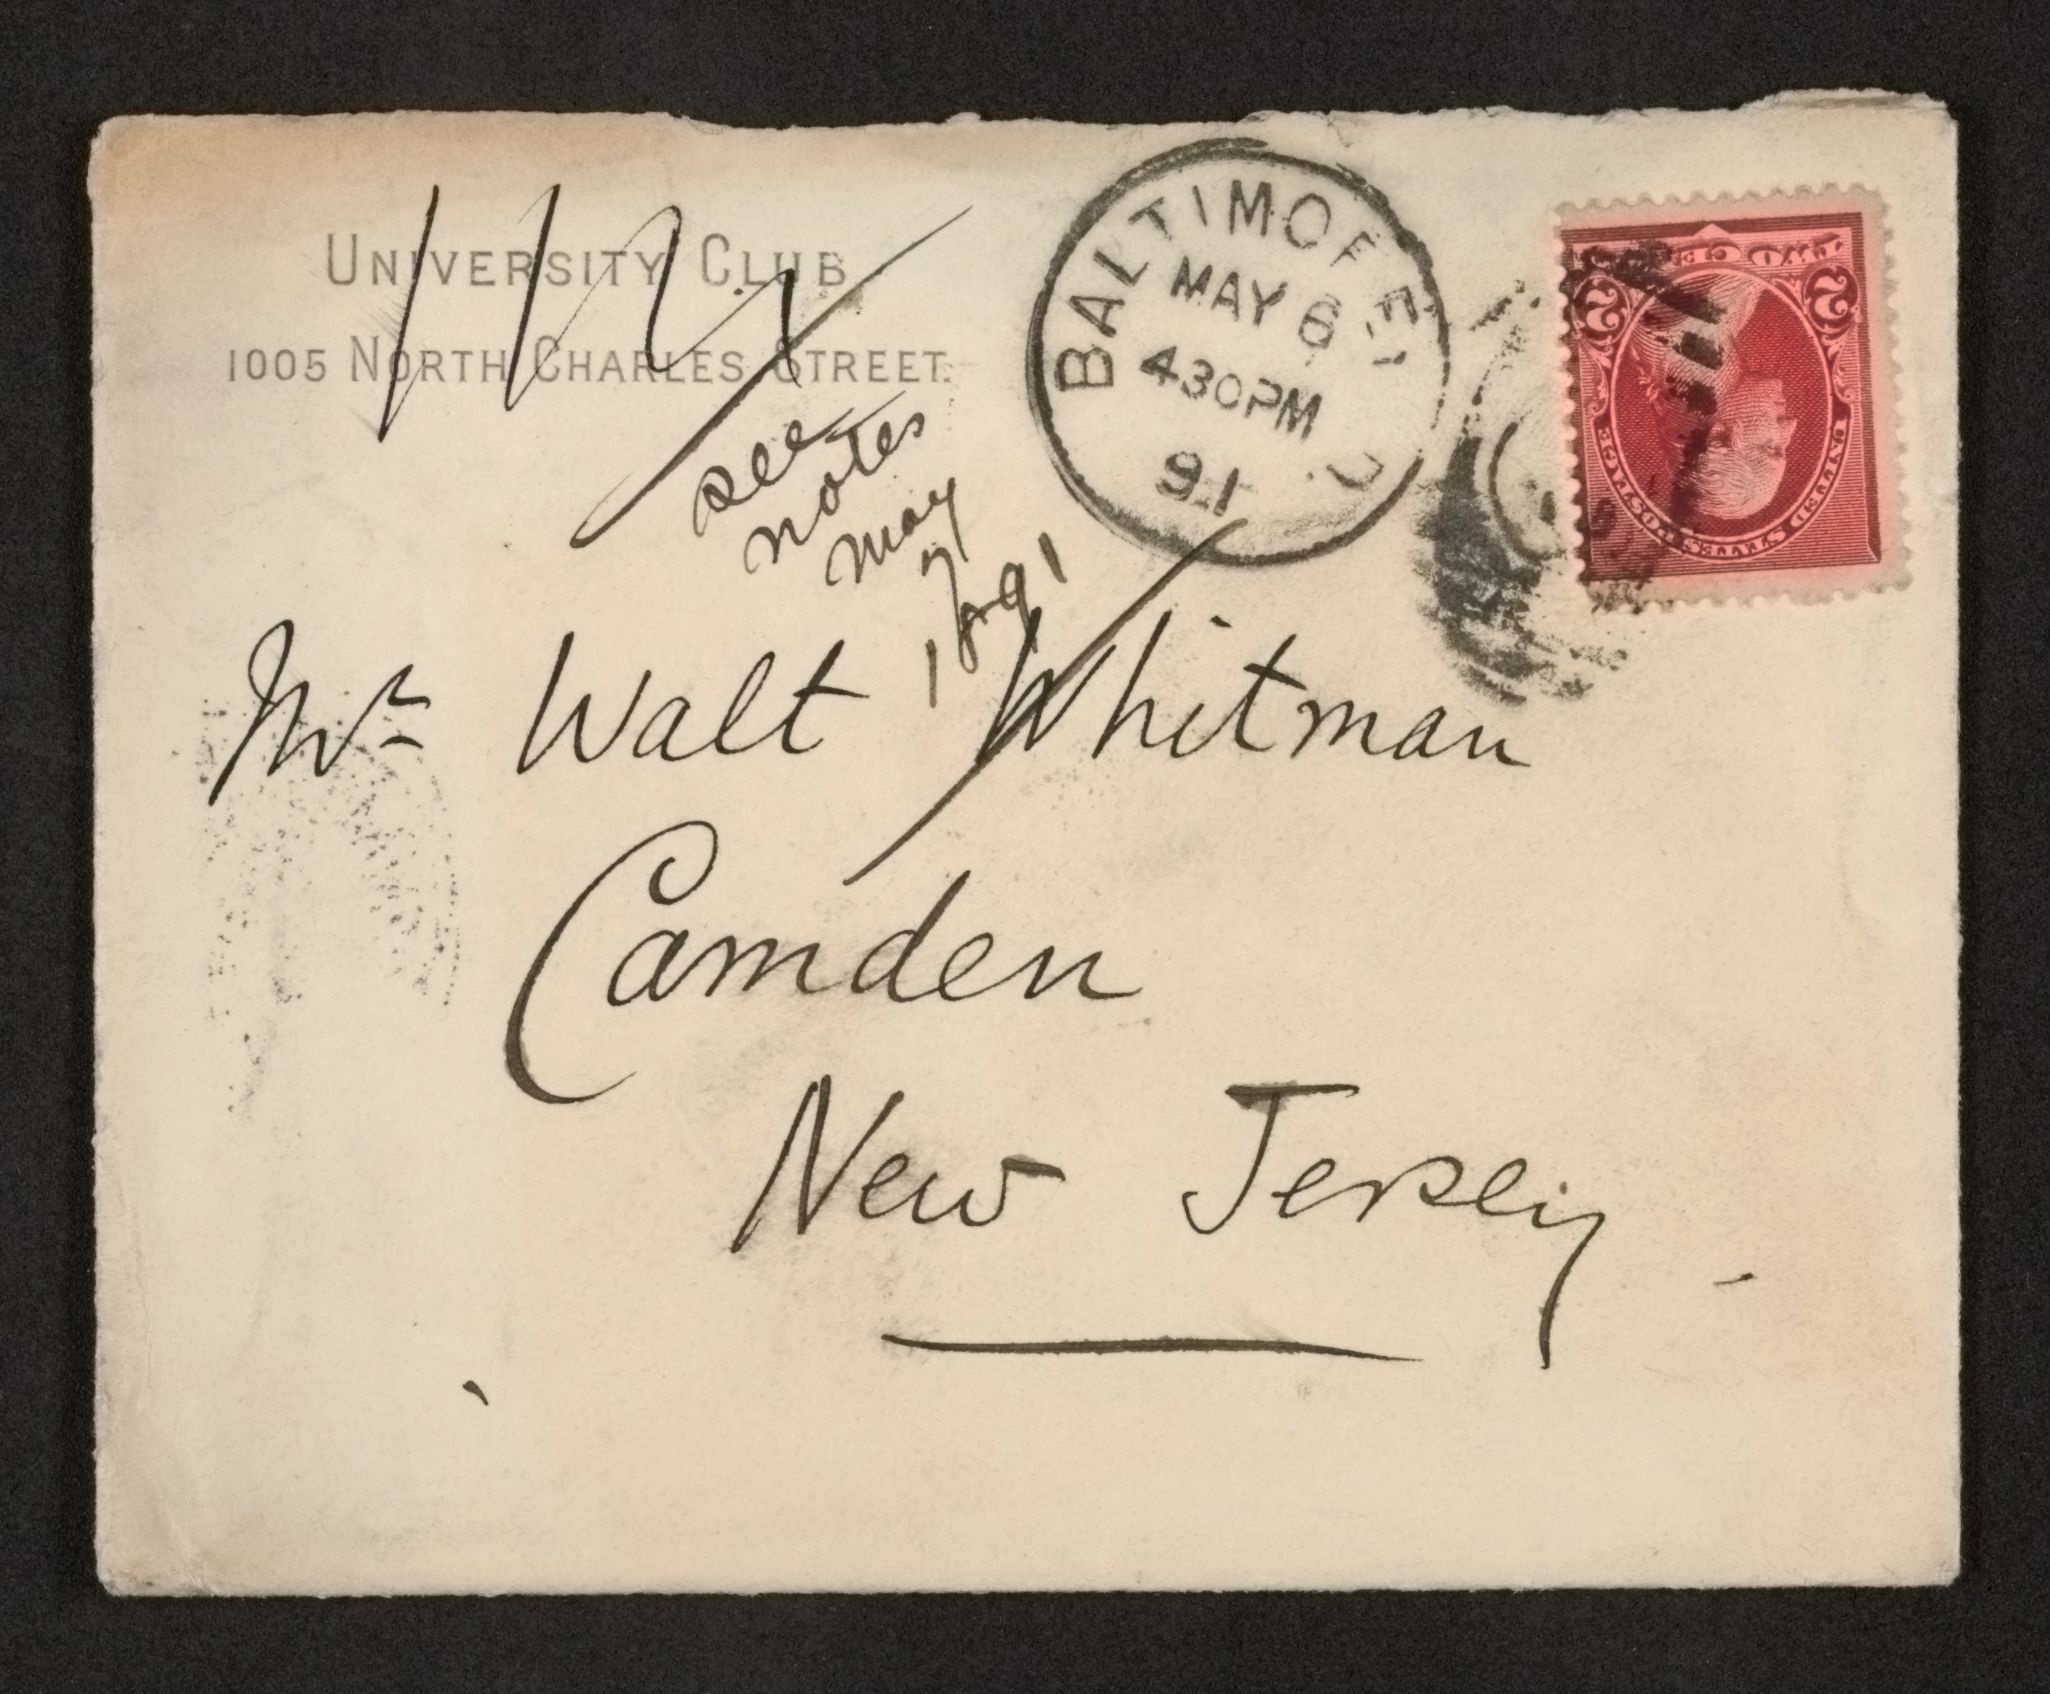 University Club
1005 North Charles Street.
BALTIMORE, MD
MAY 6
430PM
91
see
notes
May
7
1891
Mr Walt Whitman
Camden
New Jersey.
2 2
UNITED STATES POSTAGE